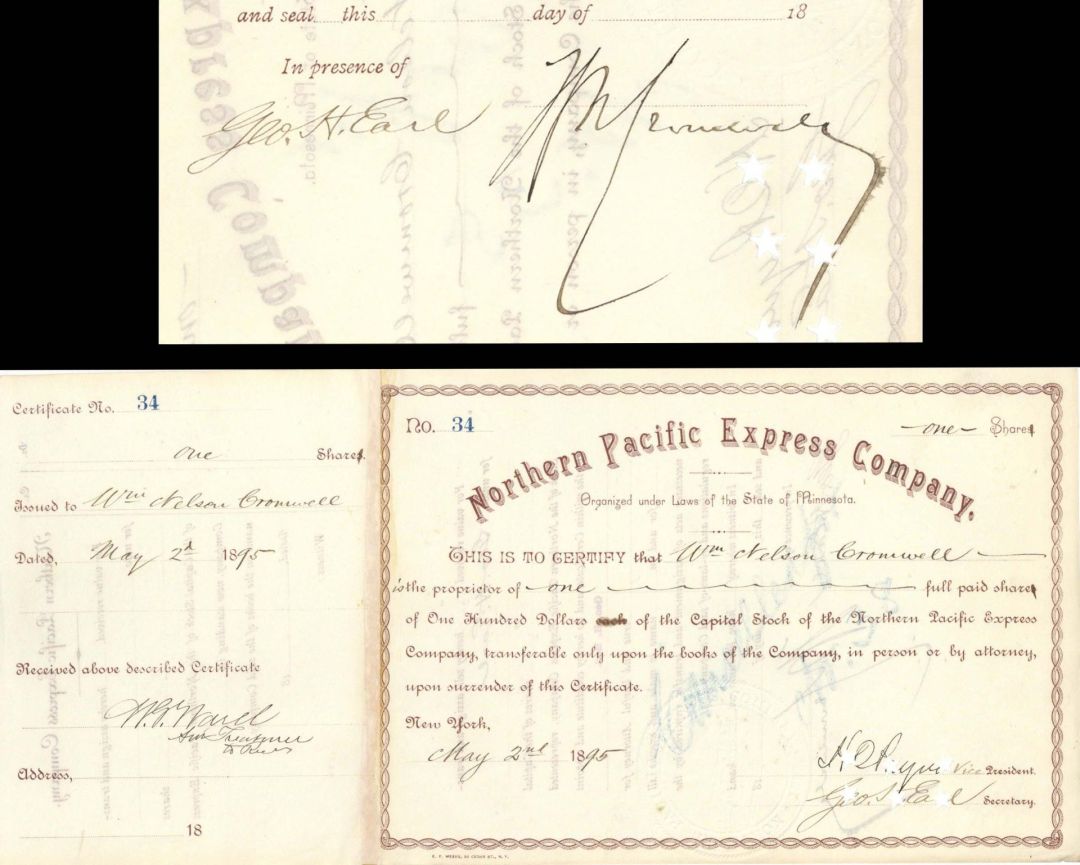 and seal this day of 18
In presence of
Geo. H. Earl Wm Cromwell
Certificate No. 34
one Shares.
Issued to Wm Nelson Cromwell
Dated, May 2d 1895
Received above described Certificate
Address,
18
No. 34 -one- Shares
Northern Pacific Express Company.
Organized under Laws of the State of Minnesota.
THIS IS TO CERTIFY that Wm Nelson Cromwell
is the proprietor of one full paid shares
of One Hundred Dollars each of the Capital Stock of the Northern Pacific Express
Company, transferable only upon the books of the Company, in person or by attorney,
upon surrender of this Certificate.
New York,
May 2nd 1895
Vice President.
Geo. H. Earl Secretary.